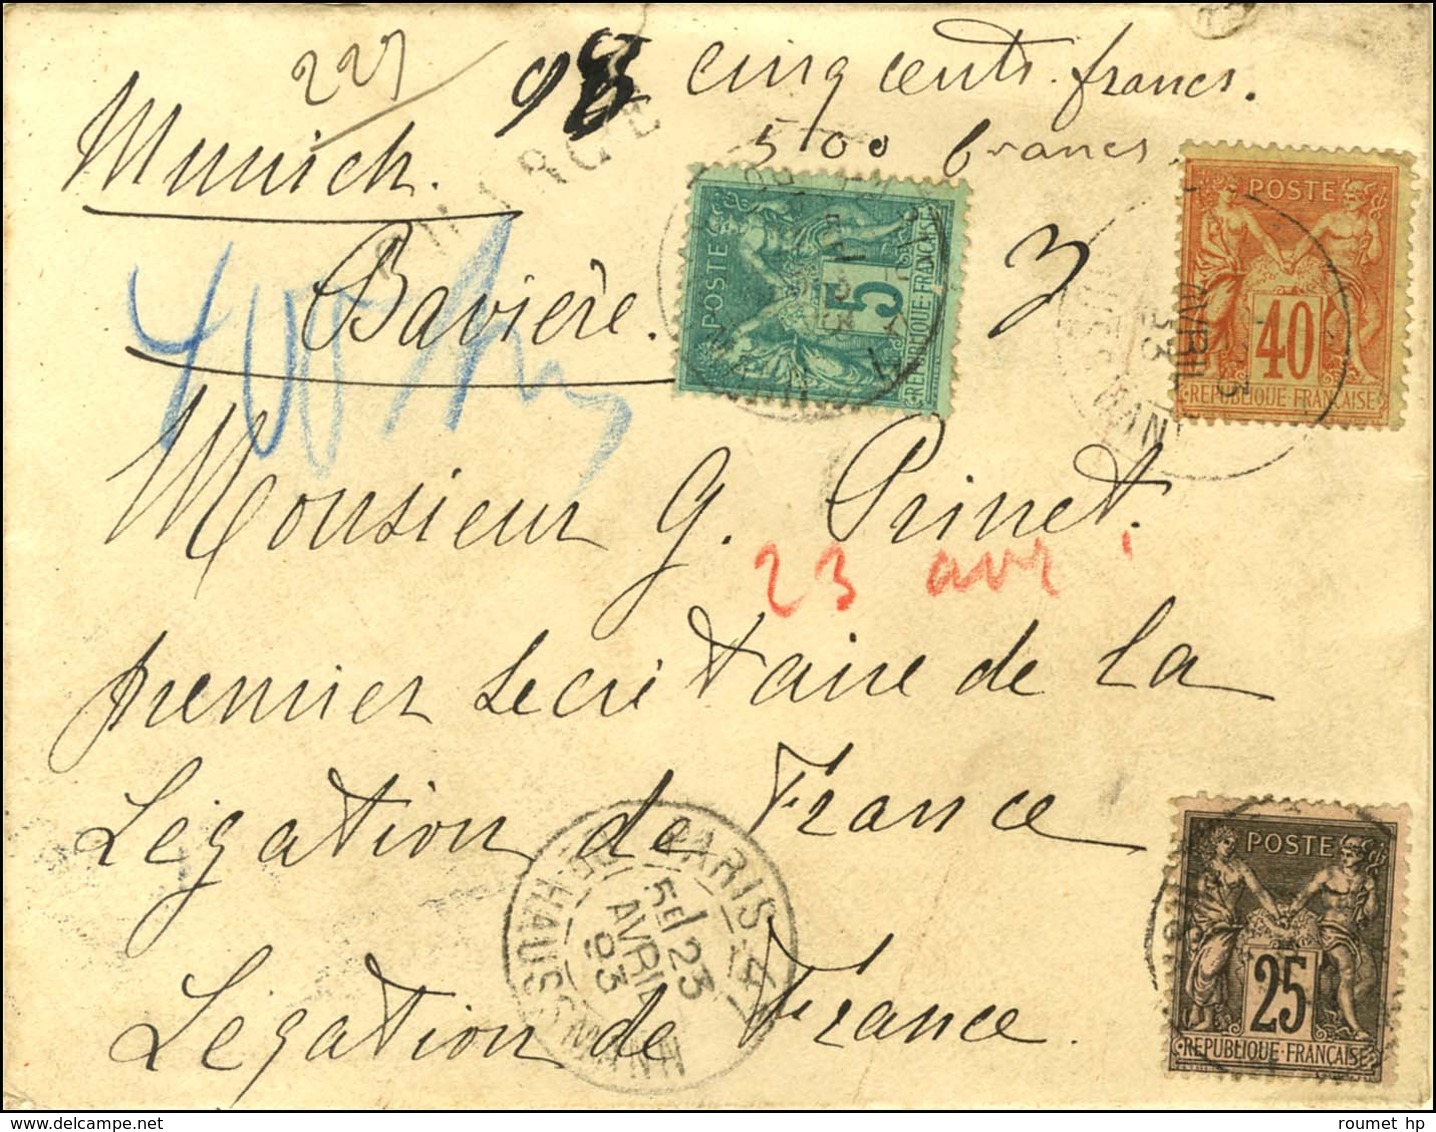 227
98 cinq cents francs.
500 francs.
Munich.
CHARGÉ
Bavière.
3
400 M
POSTE
5
REPUBLIQUE FRANÇAISE
POSTE
40
REPUBLIQUE FRANÇAISE
AVRIL
93
Monsieur G. Prinet.
23 avr
premier secrétaire de la
Légation de France
Légation de France.
PARIS
5E 23
AVRIL
93
BD HAUSSMANN
POSTE
25
REPUBLIQUE FRANÇAISE
roumet hp